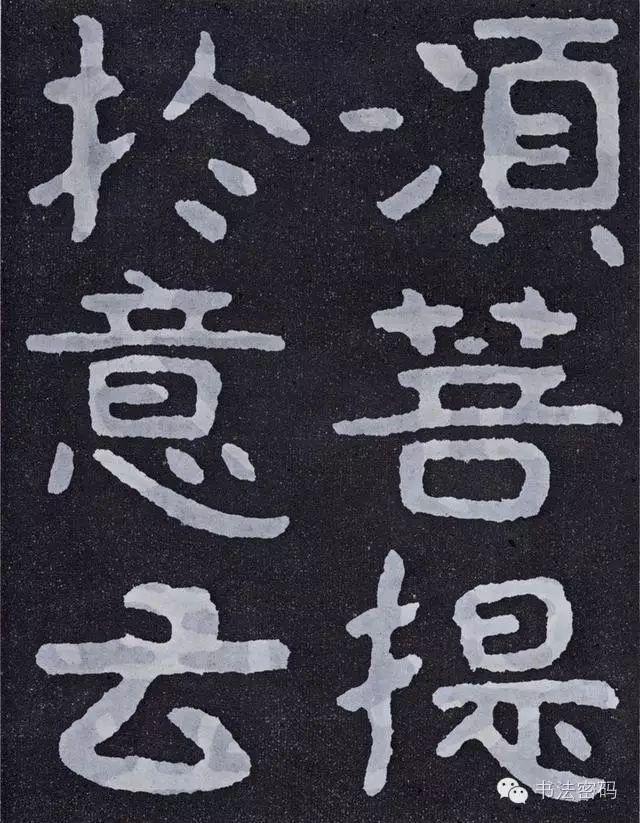 湏菩提
扵意云
书法密码